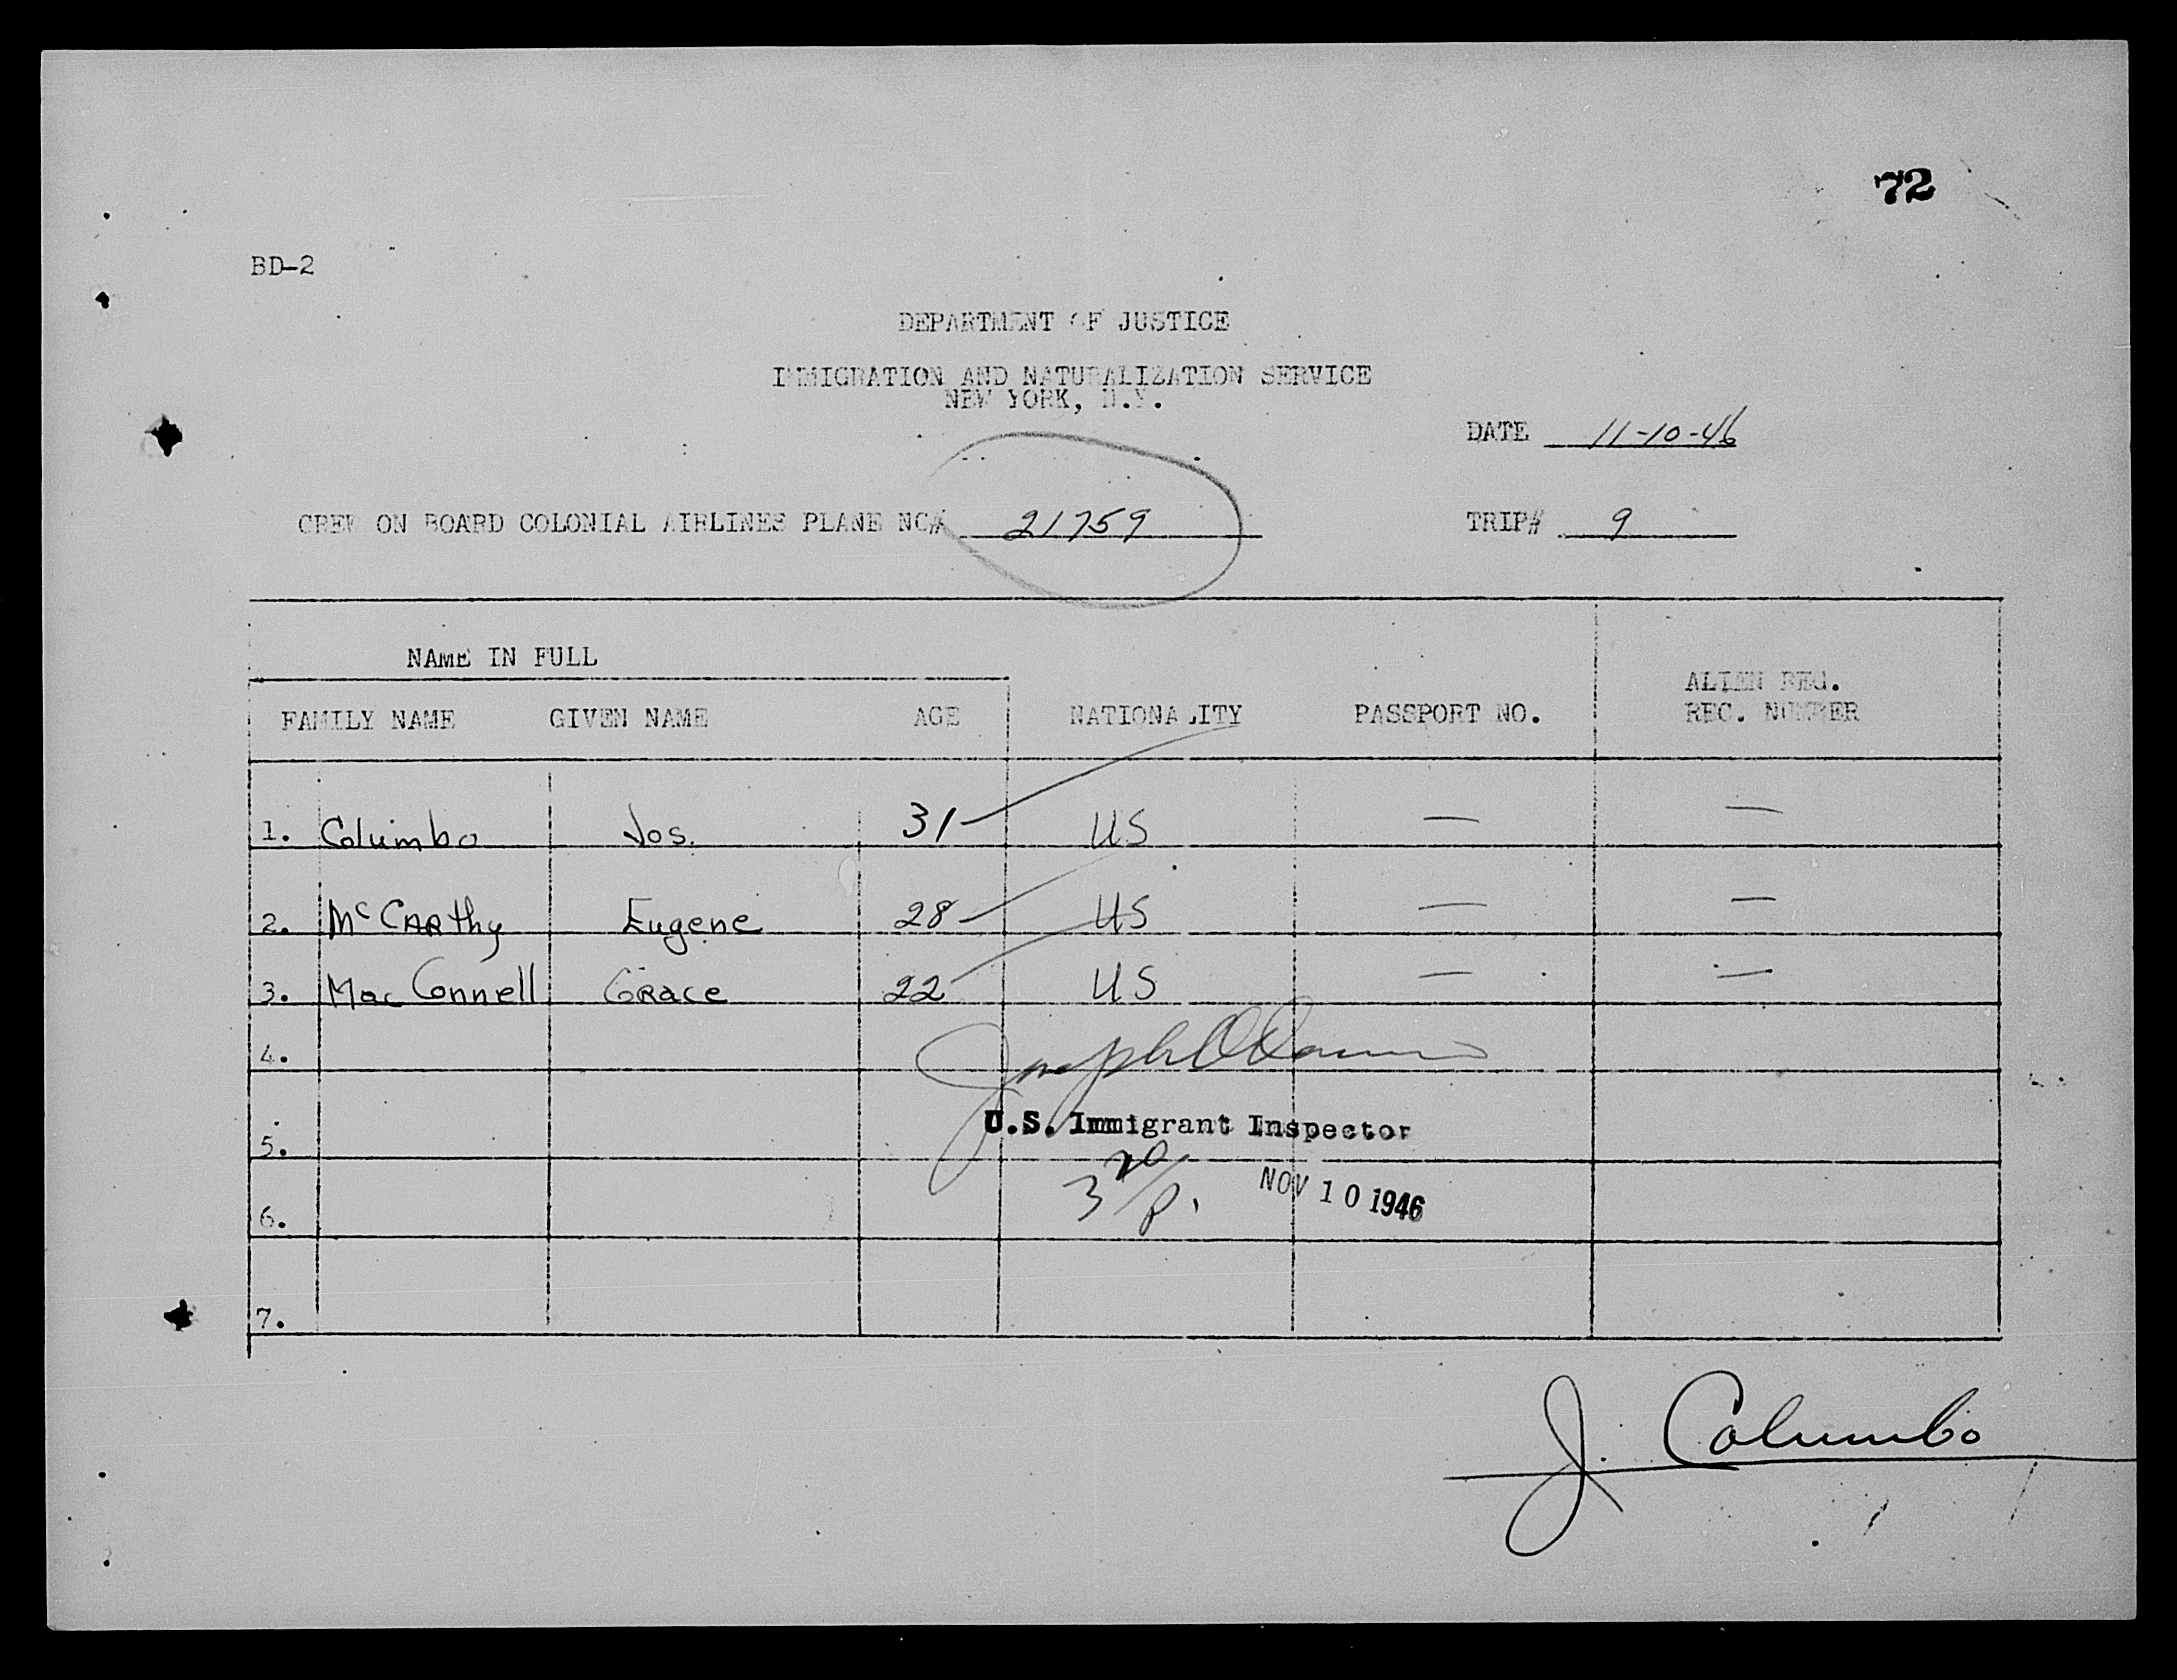 72
BD-2
DEPARTMENT OF JUSTICE
IMMIGRATION AND NATURALIZATION SERVICE
NEW YORK, N.Y.
DATE 11-10-46
CREW ON BOARD COLONIAL AIRLINES PLANE NC# 21759 TRIP# 9
NAME IN FULL
FAMILY NAME GIVEN NAME AGE NATIONALITY PASSPORT NO. ALIEN REG. REC. NUMBER
1. Columbo Jos. 31 US — —
2. McCarthy Eugene 28 US — —
3. MacConnell Grace 22 US — —
4.
Joseph
U.S. Immigrant Inspector
5.
3 20/P.
NOV 10 1946
6.
7.
J. Columbo